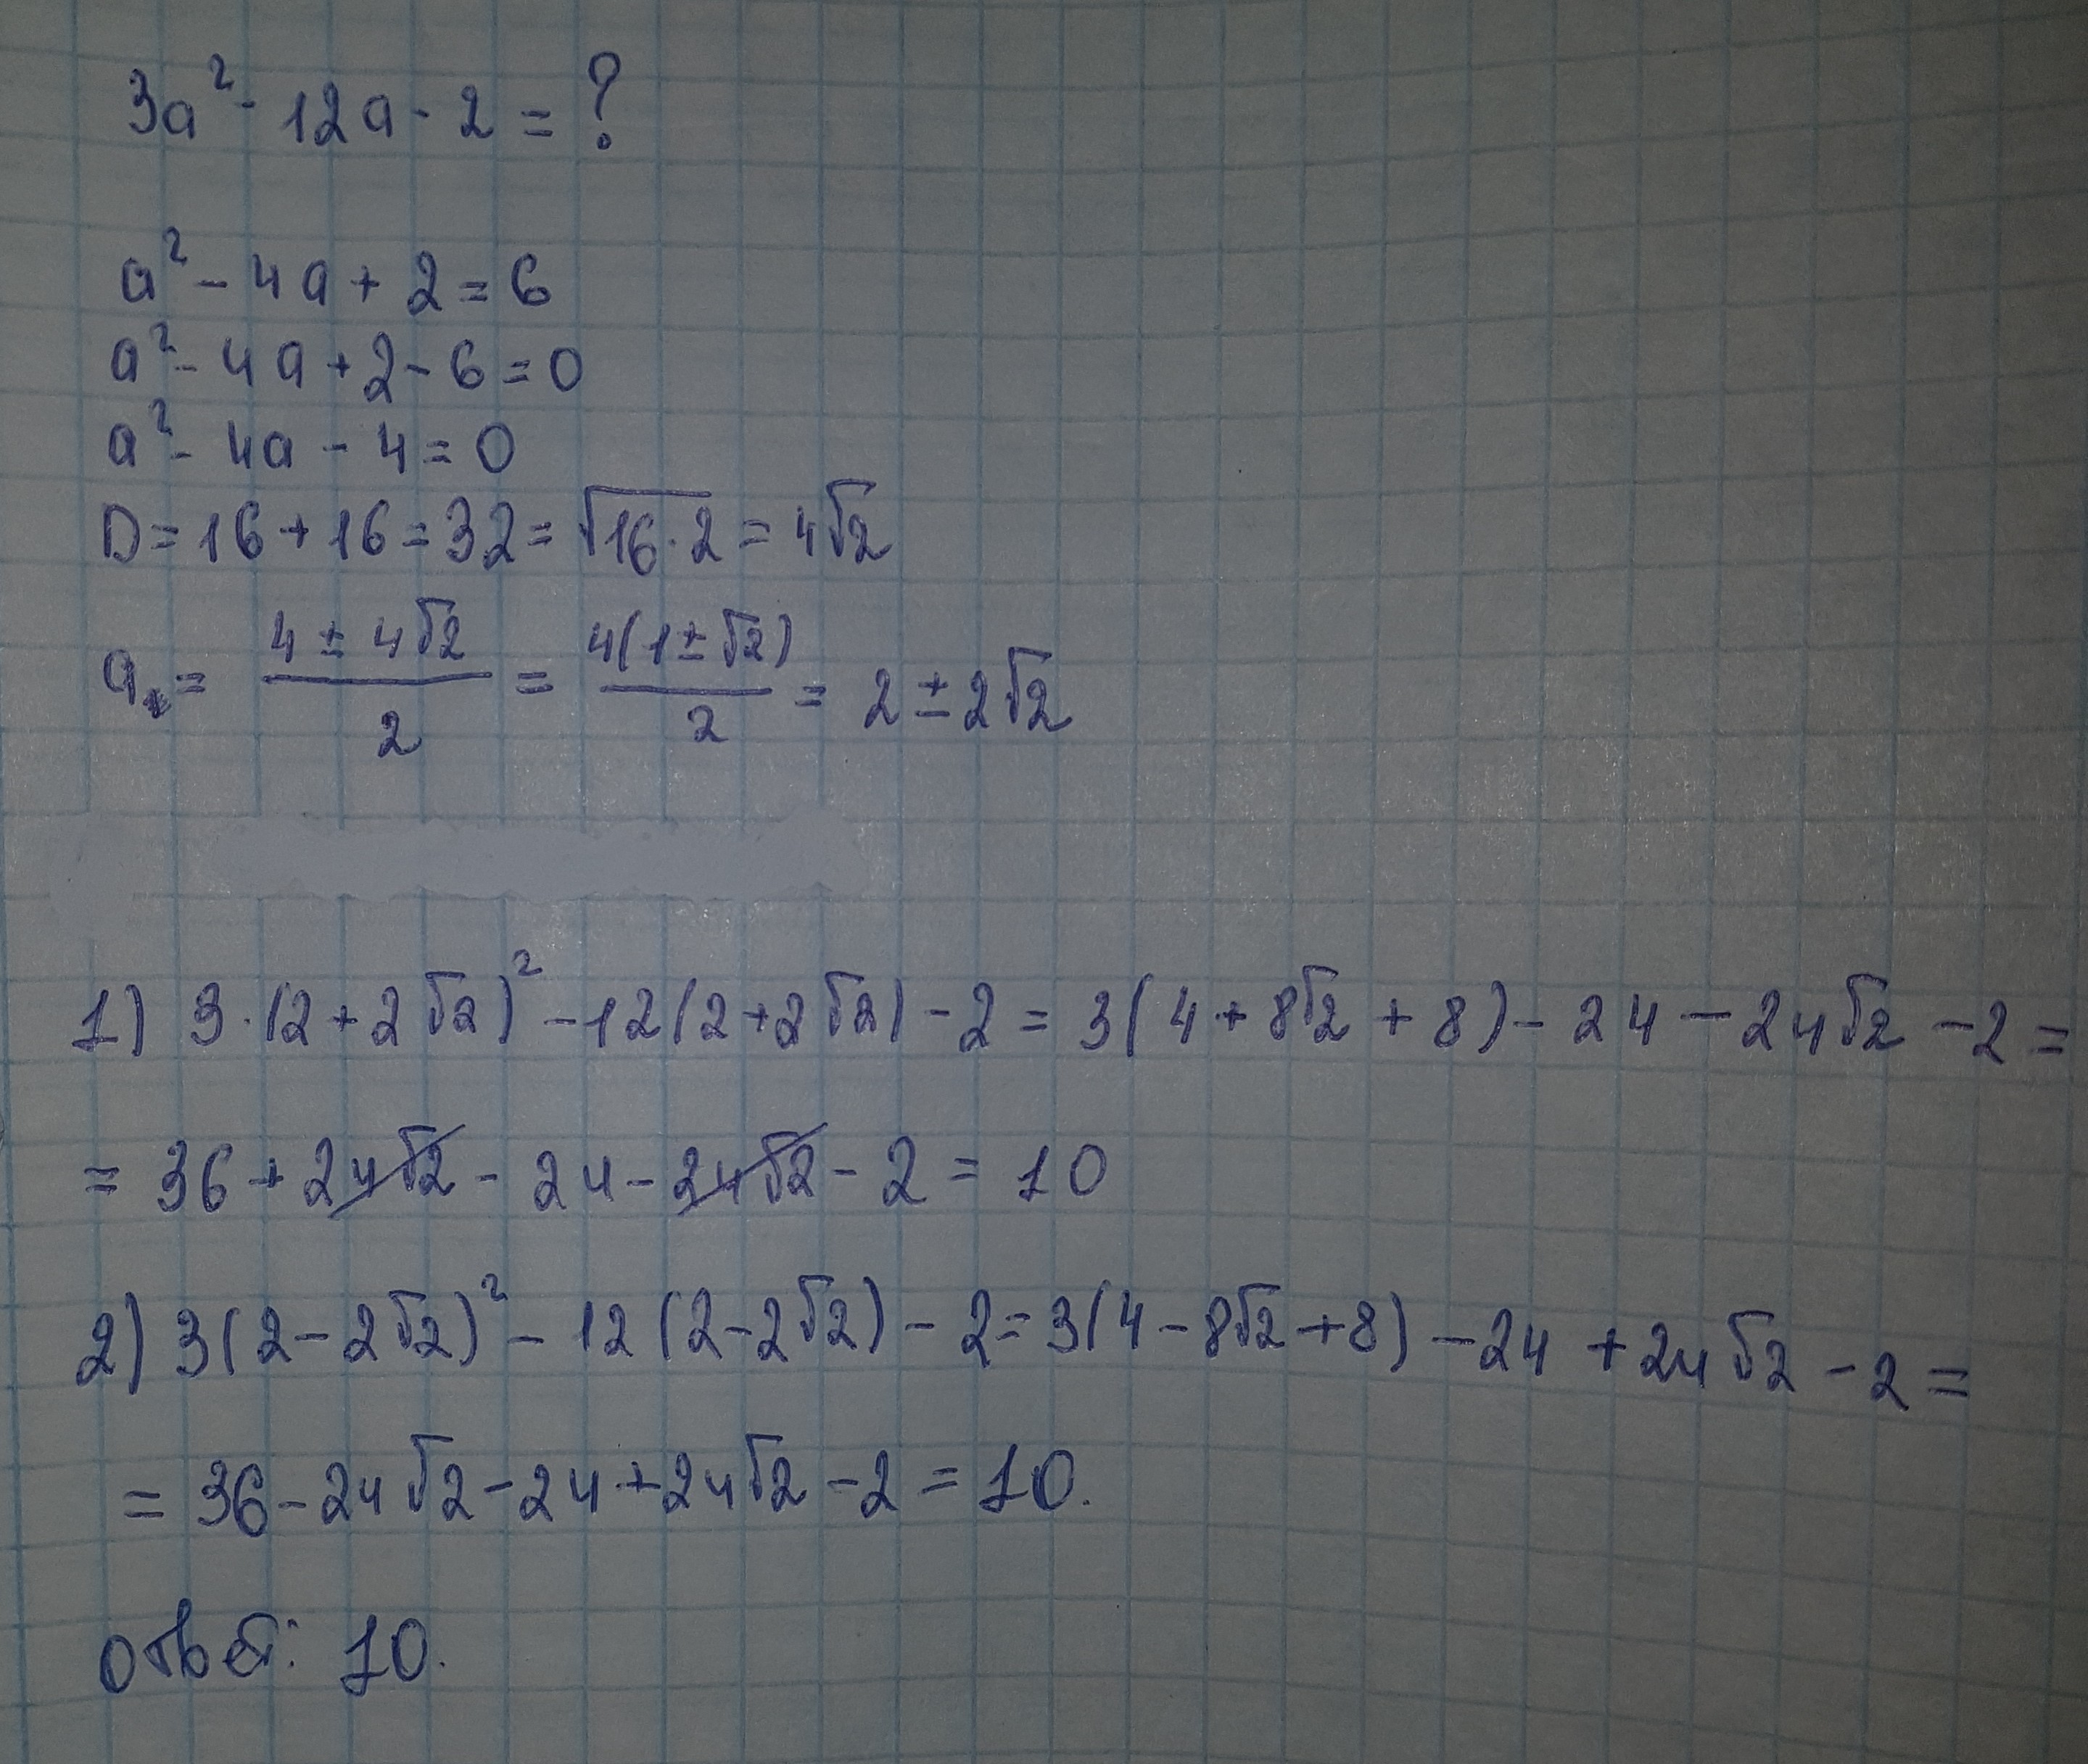 3a² - 12a - 2 = ?
a² - 4a + 2 = 6
a² - 4a + 2 - 6 = 0
a² - 4a - 4 = 0
D = 16 + 16 = 32 = √16·2 = 4√2
a = 4 ± 4√2 / 2 = 4(1 ± √2) / 2 = 2 ± 2√2
1) 3·(2 + 2√2)² - 12(2 + 2√2) - 2 = 3(4 + 8√2 + 8) - 24 - 24√2 - 2 =
= 36 + 24√2 - 24 - 24√2 - 2 = 10
2) 3(2 - 2√2)² - 12(2 - 2√2) - 2 = 3(4 - 8√2 + 8) - 24 + 24√2 - 2 =
= 36 - 24√2 - 24 + 24√2 - 2 = 10.
ответ: 10.